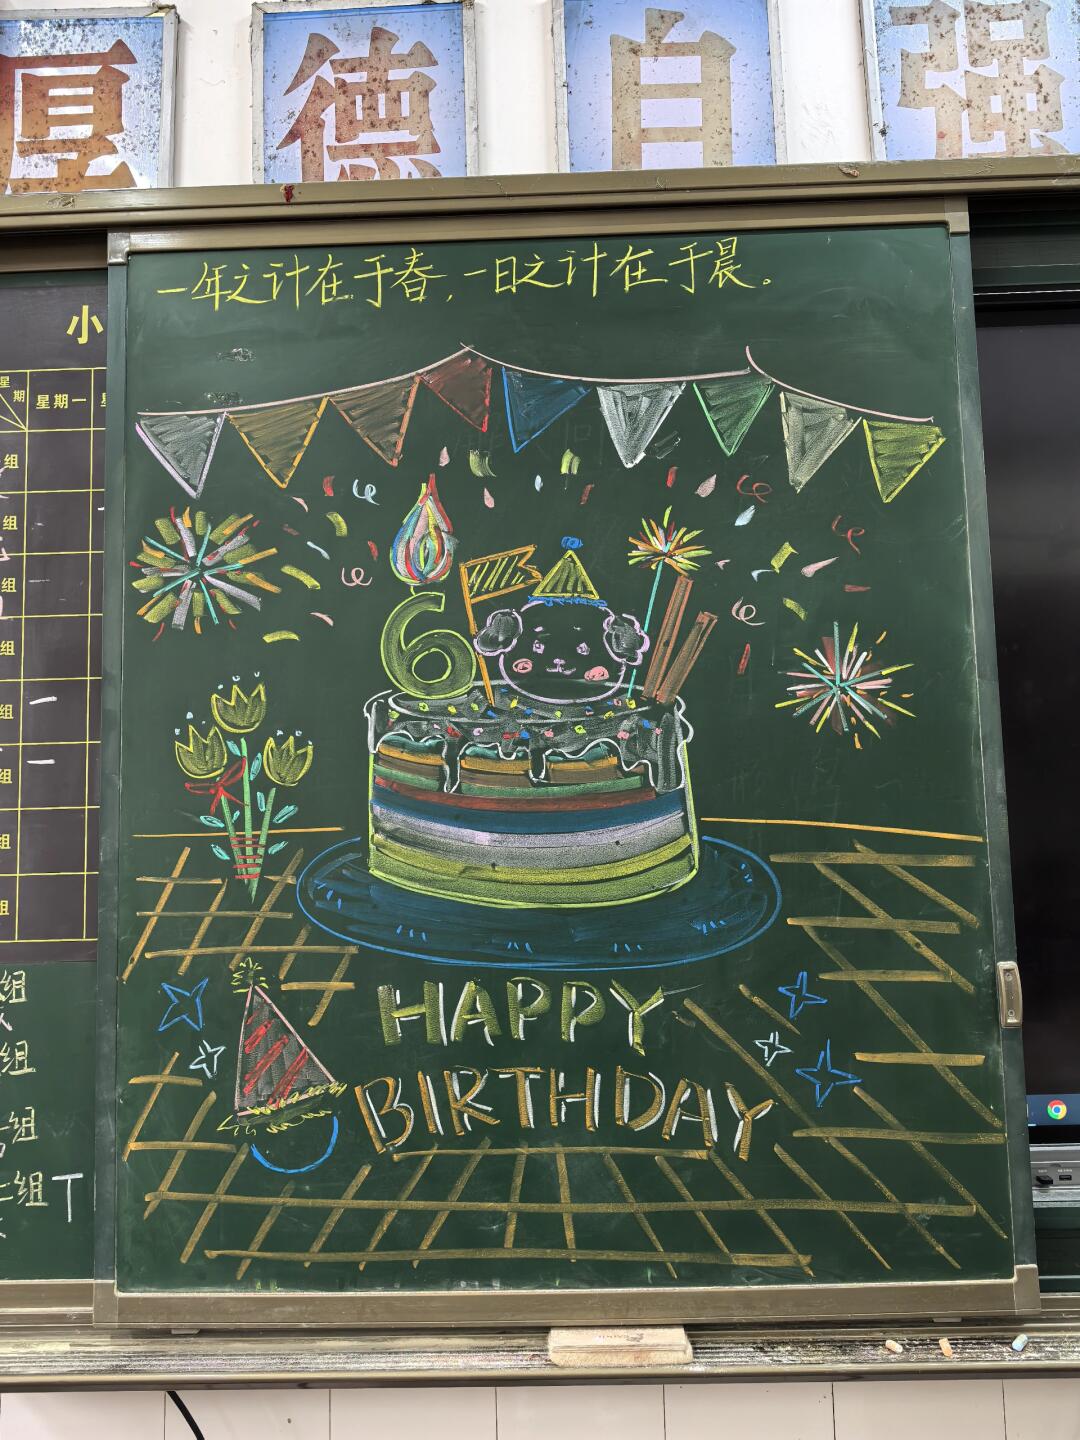 厚德自强
一年之计在于春，一日之计在于晨。
小
星期
星期一
组
组
组
组
组
组
组
组
6
HAPPY
BIRTHDAY
组
组
组
组 T